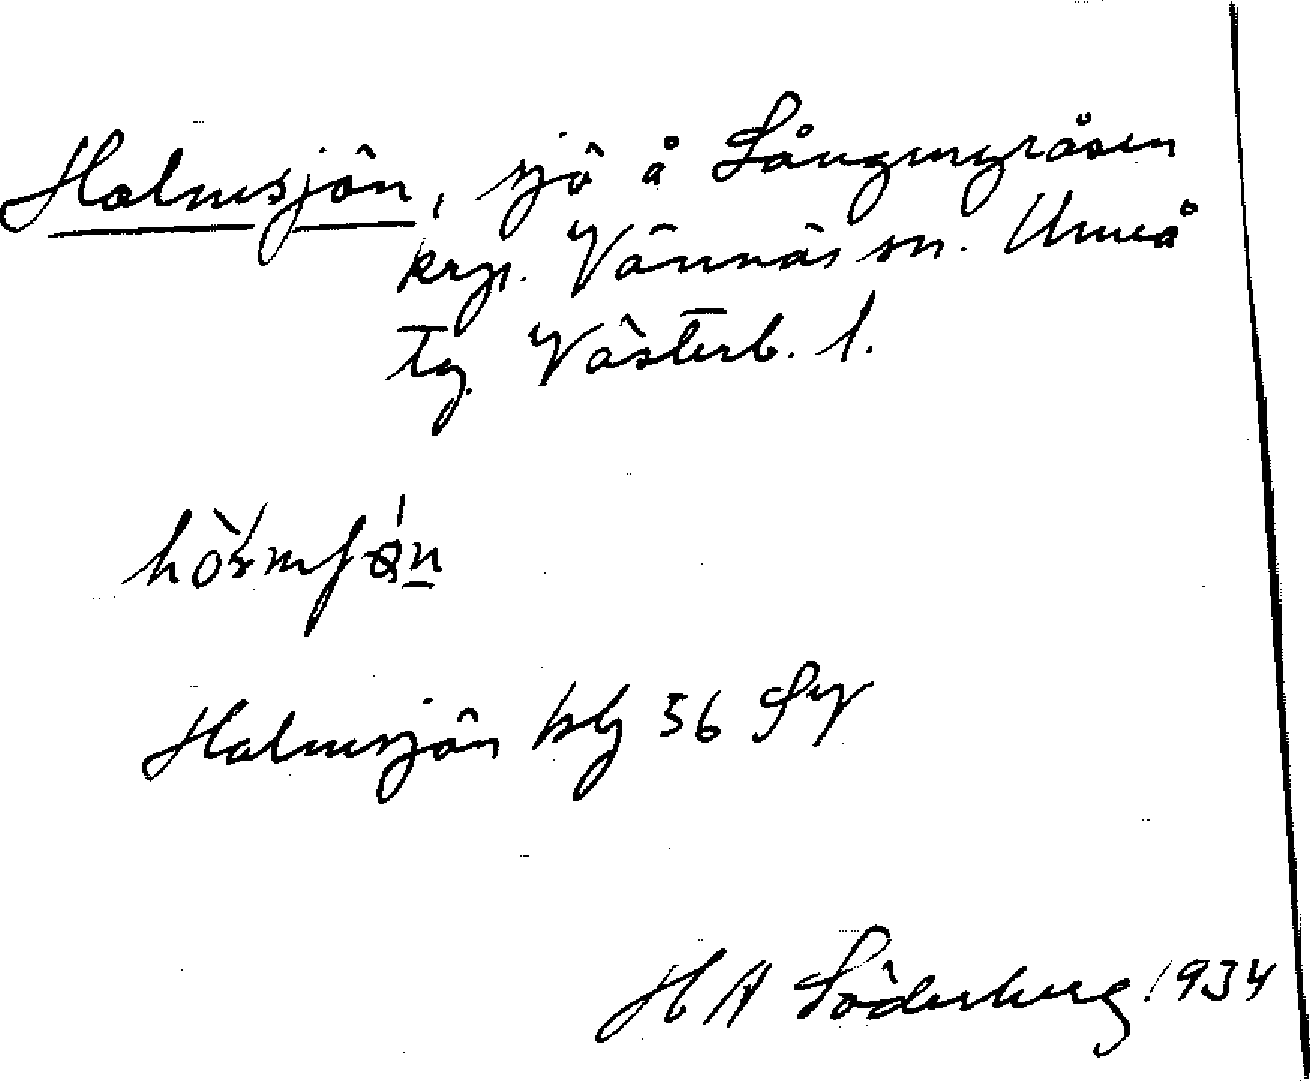 Holmsjön, sjö å Långmyråsen
krp. Vännäs sn. Umeå
tg. Västerb. l.
Holmsjön blg 56 SV
H A Söderberg 1934